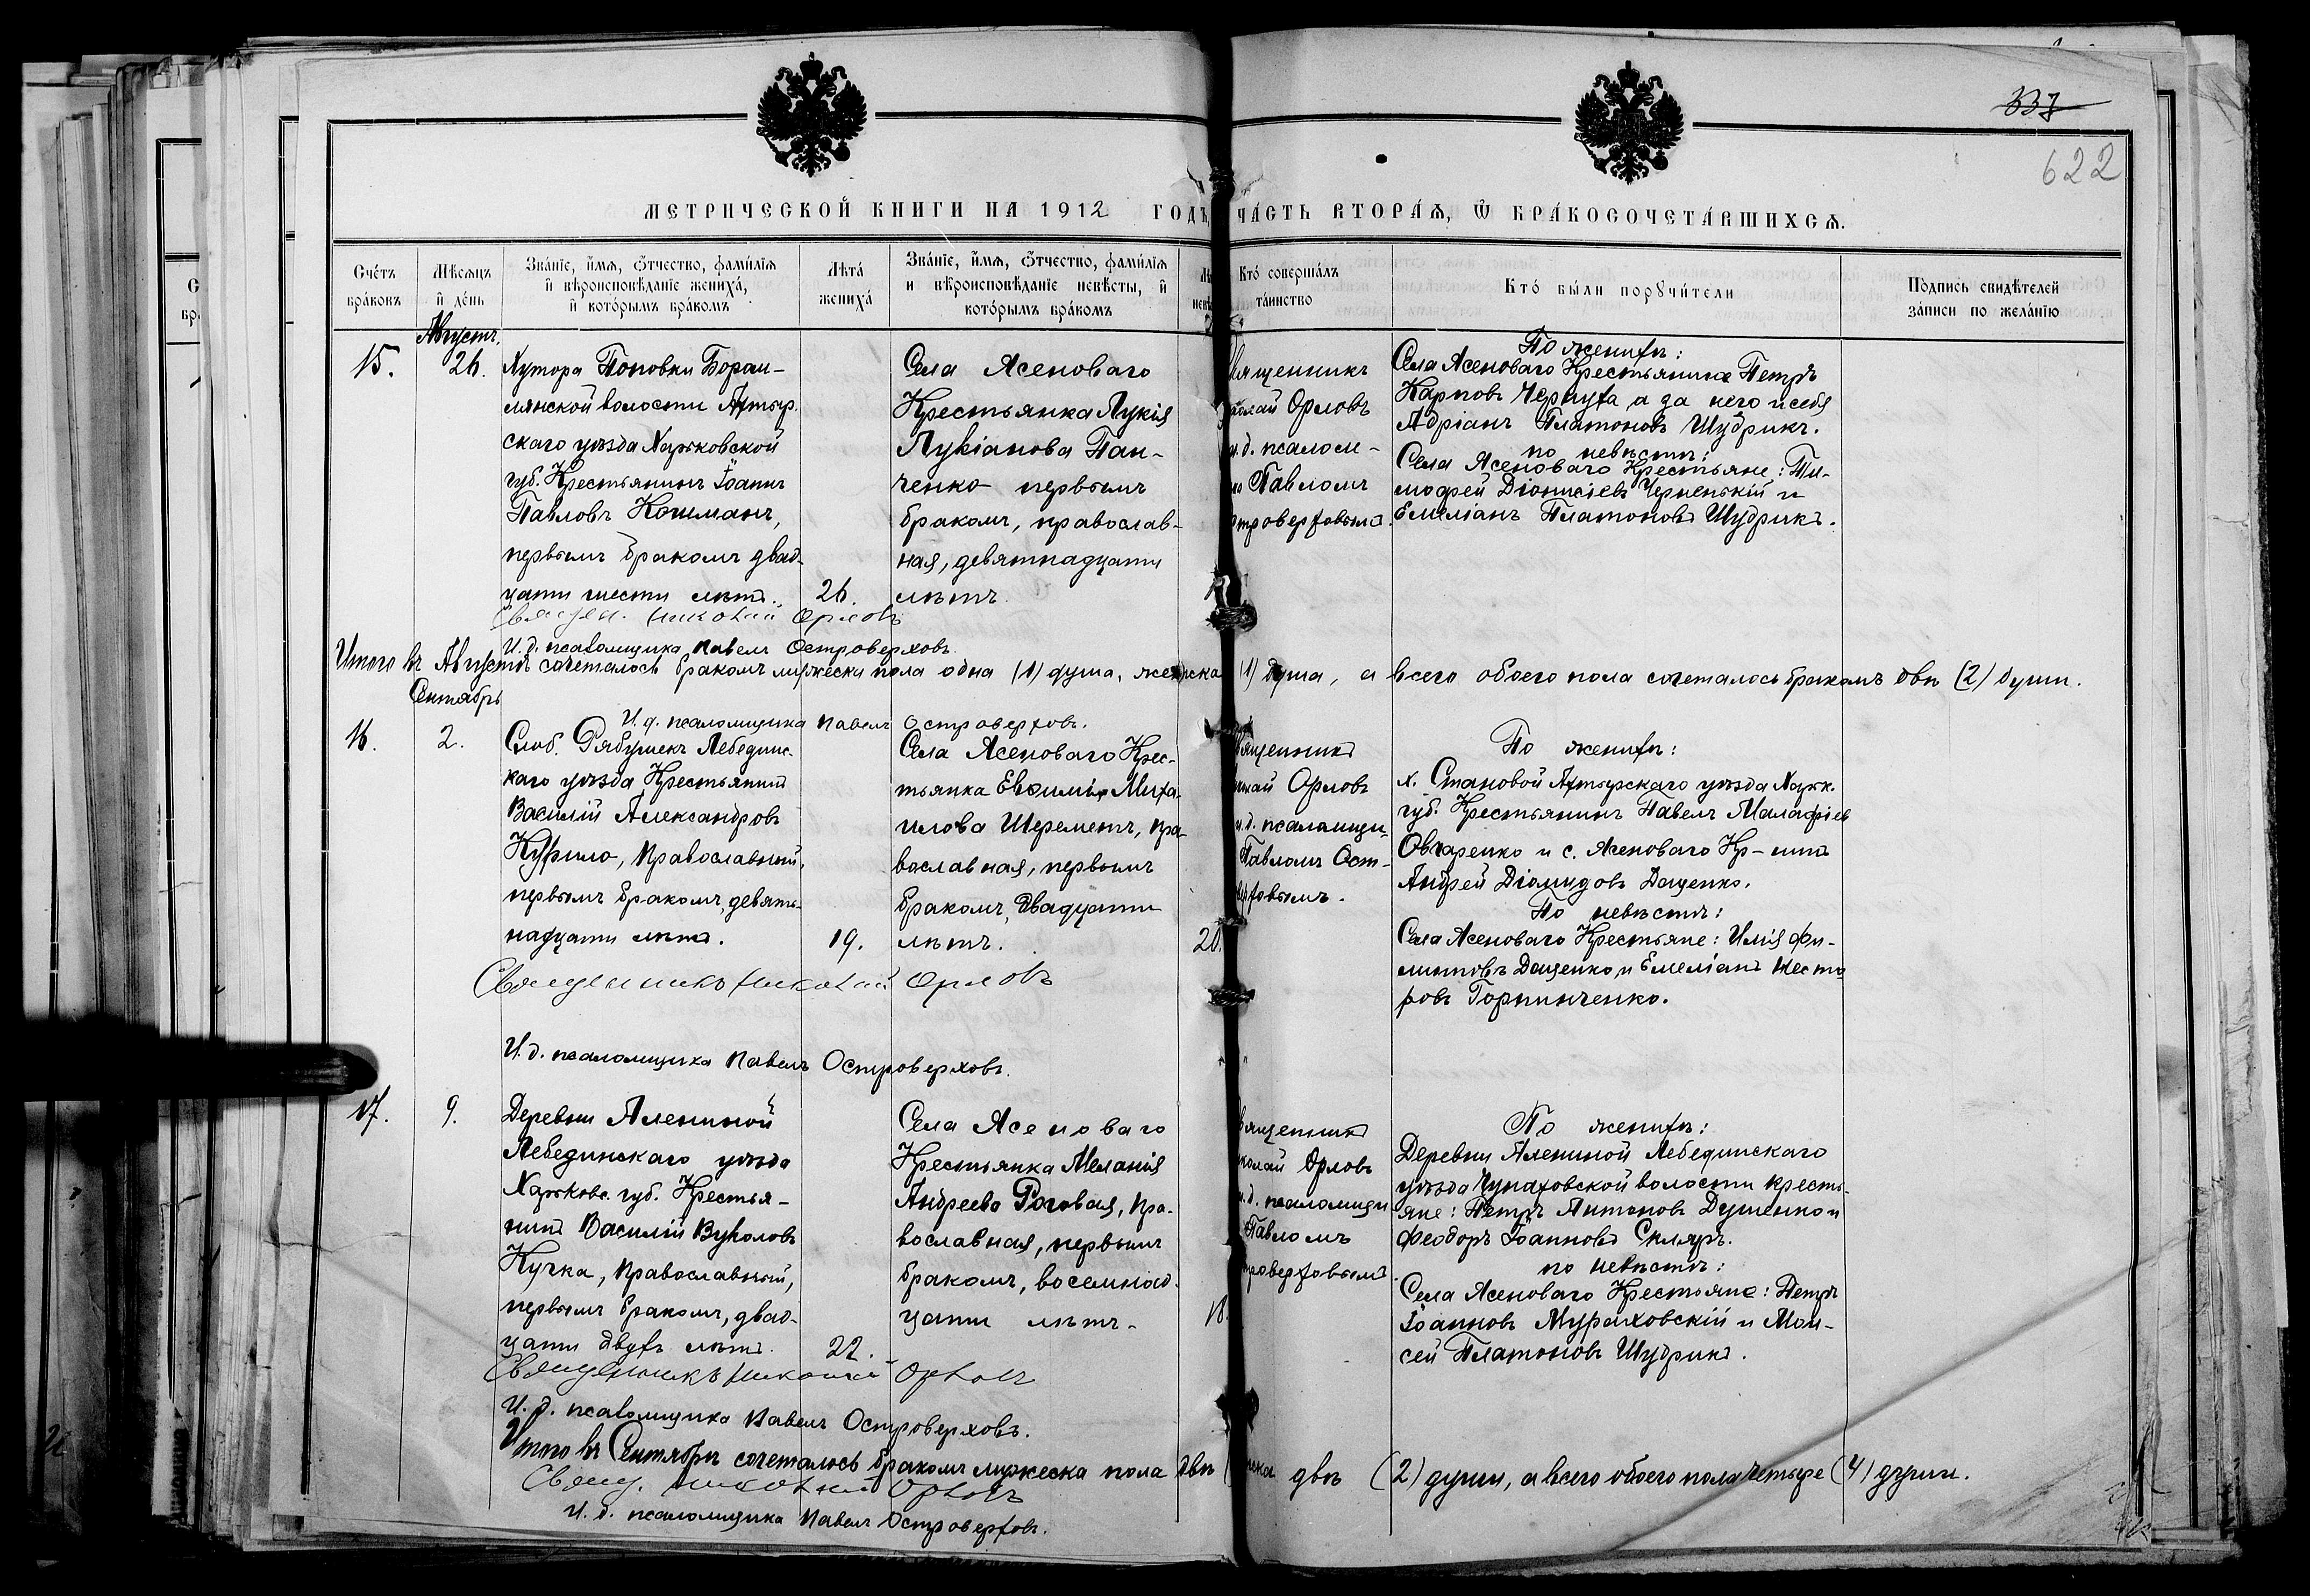 337
622
МЕТРИЧЕСКОЙ КНИГИ НА 1912 ГОДЪ, ЧА́СТЬ ВТОРА́Я, Ѿ БРА́КОСОЧЕТА́ВШИХСЯ.
Сче́тъ бра́ковъ
Мѣ́сяцъ и де́нь
Зва́нїе, и́мя, ѻ́тчество, фами́лїя и вѣроисповѣ́данїе жениха́, и кото́рымъ бра́комъ
Лѣта́ жениха́
Зва́нїе, и́мя, ѻ́тчество, фами́лїя и вѣроисповѣ́данїе невѣ́сты, и кото́рымъ бра́комъ
Кто́ соверша́лъ та́инство
Кто́ бы́ли порꙋчи́тели
По́дпись свидѣ́телей за́писи по жела́нїю
Августъ.
15.
26.
Хутора Поповки Бором-
лянской волости Ахтыр.
скаго уѣзда Харьковской
губ. Крестьянинъ Іоаннъ
Павловъ Кошманъ,
первымъ бракомъ двад-
цати шести лѣтъ.
26.
Села Ясеноваго
Крестьянка Лукія
Лукіанова Пан-
ченко первымъ
бракомъ, православ-
ная, девятнадцати
лѣтъ.
вященникъ
олай Орловъ
и.д. псалом-
Павломъ
троверховымъ.
По женихѣ:
Села Ясеноваго Крестьянинъ Петръ
Карповъ Чернуха, а за него и себя
Адріанъ Платоновъ Шудрикъ.
по невѣстѣ:
Села Ясеноваго Крестьяне: Ти-
мофей Діонисіевъ Черненькій и
Емеліанъ Платоновъ Шудрикъ.
Священ. Николай Орловъ
И. д. псаломщика Павелъ Островерховъ.
Итого въ Августѣ сочеталось бракомъ мужеска пола одна (1) душа, женска (1) душа, а всего обоего пола сочеталось бракомъ двѣ (2) души.
Сентябрь
И. д. псаломщика Павелъ Островерховъ.
16.
2.
Слоб. Рябушекъ Лебединс-
каго уѣзда Крестьянинъ
Василій Александровъ
Курило, Православный,
первымъ бракомъ, девят-
надцати лѣтъ.
19.
Села Ясеноваго Крес-
тьянка Евѳимія Миха-
илова Шереметъ, пра-
вославная, первымъ
бракомъ, двадцати
лѣтъ.
20.
вященникъ
олай Орловъ
и.д. псаломщи-
Павломъ Ост-
верховымъ.
По женихѣ:
х. Становой Ахтырскаго уѣзда Харьк.
губ. Крестьянинъ Павелъ Малафіев
Овчаренко и с. Ясеноваго Кр-нинъ
Андрей Діомидовъ Даценко.
По невѣстѣ:
Села Ясеноваго Крестьяне: Илія Фи-
липповъ Даценко и Емеліанъ Несто-
ровъ Горпинченко.
Священникъ Николай Орловъ
И. д. псаломщика Павелъ Островерховъ.
17.
9.
Деревни Алениной
Лебединскаго уѣзда
Харьковс. губ. Крестья-
нинъ Василій Вуколовъ
Кучка, Православный,
первымъ бракомъ, двад-
цати двухъ лѣтъ.
22.
Села Ясеноваго
Крестьянка Меланія
Андреева Роговая, пра-
вославная, первымъ
бракомъ, восемнад-
цати лѣтъ.
18.
вященникъ
колай Орловъ
и.д. псаломщи
Павломъ
троверховымъ.
По женихѣ:
Деревни Алениной Лебединскаго
уѣзда Чупаховской волости кресть-
яне: Петръ Антоновъ Душенко и
Феодоръ Іоанновъ Скляръ.
по невѣстѣ:
Села Ясеноваго Крестьяне: Петръ
Іоанновъ Мураховскій и Мои-
сей Платоновъ Шудрикъ.
Священникъ Николай Орловъ
И. д. псаломщика Павелъ Островерховъ.
Итого въ Сентябрѣ сочеталось бракомъ мужеска пола двѣ двѣ (2) души, а всего обоего пола четыре (4) души.
Свящ. Николай Орловъ
И. д. псаломщика Павелъ Островерховъ.